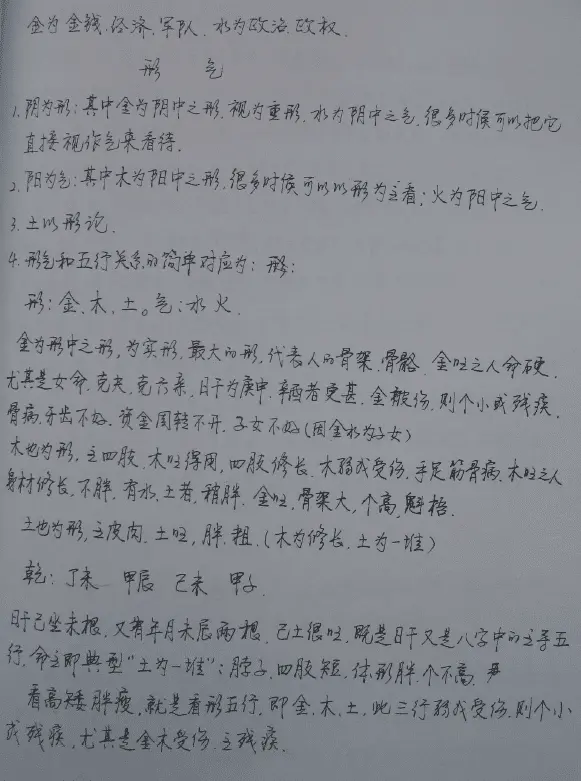 金为金钱.经济.军队. 水为政治.政权.
形 气
1.阴为形:其中金为阴中之形.视为重形.水为阴中之气.很多时候可以把它
直接视作气来看待.
2.阳为气:其中木为阳中之形,很多时候可以以形为主看;火为阳中之气.
3.土以形论.
4.形气和五行关系的简单对应为: 形:
形:金.木.土。气:水火
金为形中之形,为实形.最大的形,代表人的骨架.骨骼. 金旺之人命硬.
尤其是女命.克夫,克六亲,日干为庚申.辛酉者更甚.金被伤.则个小或残疾.
骨病.牙齿不好.资金周转不开.子女不好(因金水为子女)
木也为形.主四肢.木旺得用,四肢修长.木弱或受伤.手足筋骨病.木旺之人
身材修长,不胖.有水.土者,稍胖.金旺,骨架大,个高,魁梧.
土也为形,主皮肉.土旺,胖.粗.(木为修长.土为一堆)
乾:丁未 甲辰 己未 甲子.
日干己坐未根.又有年月未辰两根.己土很旺.既是日干又是八字中的主导五
行,命主即典型“土为一堆”:脖子,四肢短.体形胖.个不高.
看高矮胖瘦.就是看形五行.即金.木.土.此三行弱或受伤.则个小
或残疾.尤其是金木受伤.主残疾.